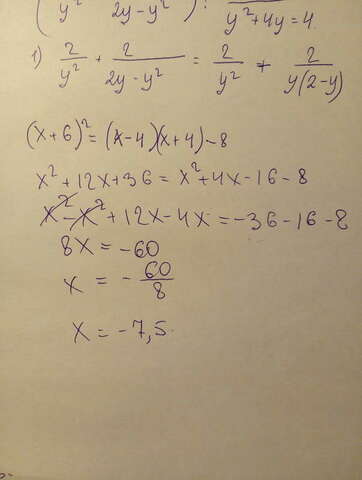 ( y² 2y-y² ) : y²+4y=4
1) 2/y² + 2/2y-y² = 2/y² + 2/y(2-y)
(x+6)²=(x-4)(x+4)-8
x²+12x+36=x²+4x-16-8
x²-x²+12x-4x=-36-16-8
8x=-60
x = -60/8
x=-7,5.